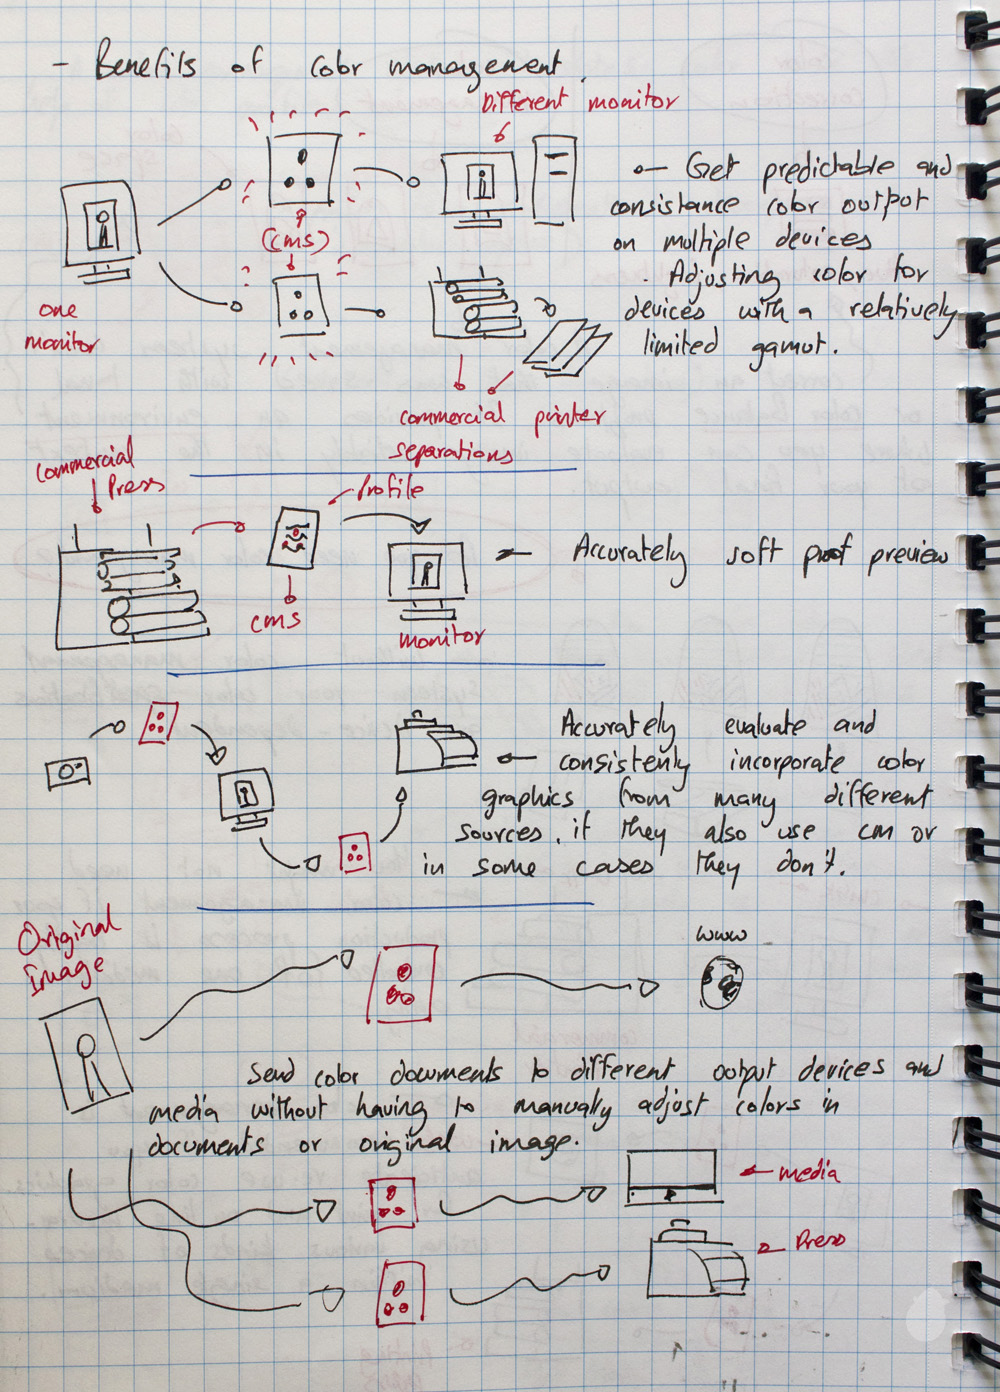 - Benefits of color management.
Different monitor
(cms)
one
monitor
o- Get predictable and
consistance color output
on multiple devices
. Adjusting color for
devices with a relatively
limited gamut.
commercial printer
separations
commercial
Press
Profile
cms
monitor
Accurately soft proof preview
Accurately evaluate and
consistenly incorporate color
graphics from many different
sources, if they also use cm or
in some cases they don't.
Original
Image
www
Send color documents to different output devices and
media without having to manually adjust colors in
documents or original image.
media
Press